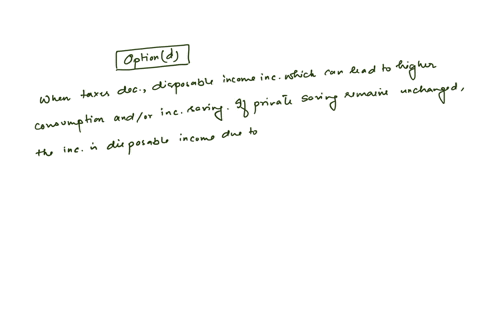 Option(d)
When taxes dec., disposable income inc. which can lead to higher
consumption and/or inc. saving. If private saving remains unchanged,
the inc. in disposable income due to